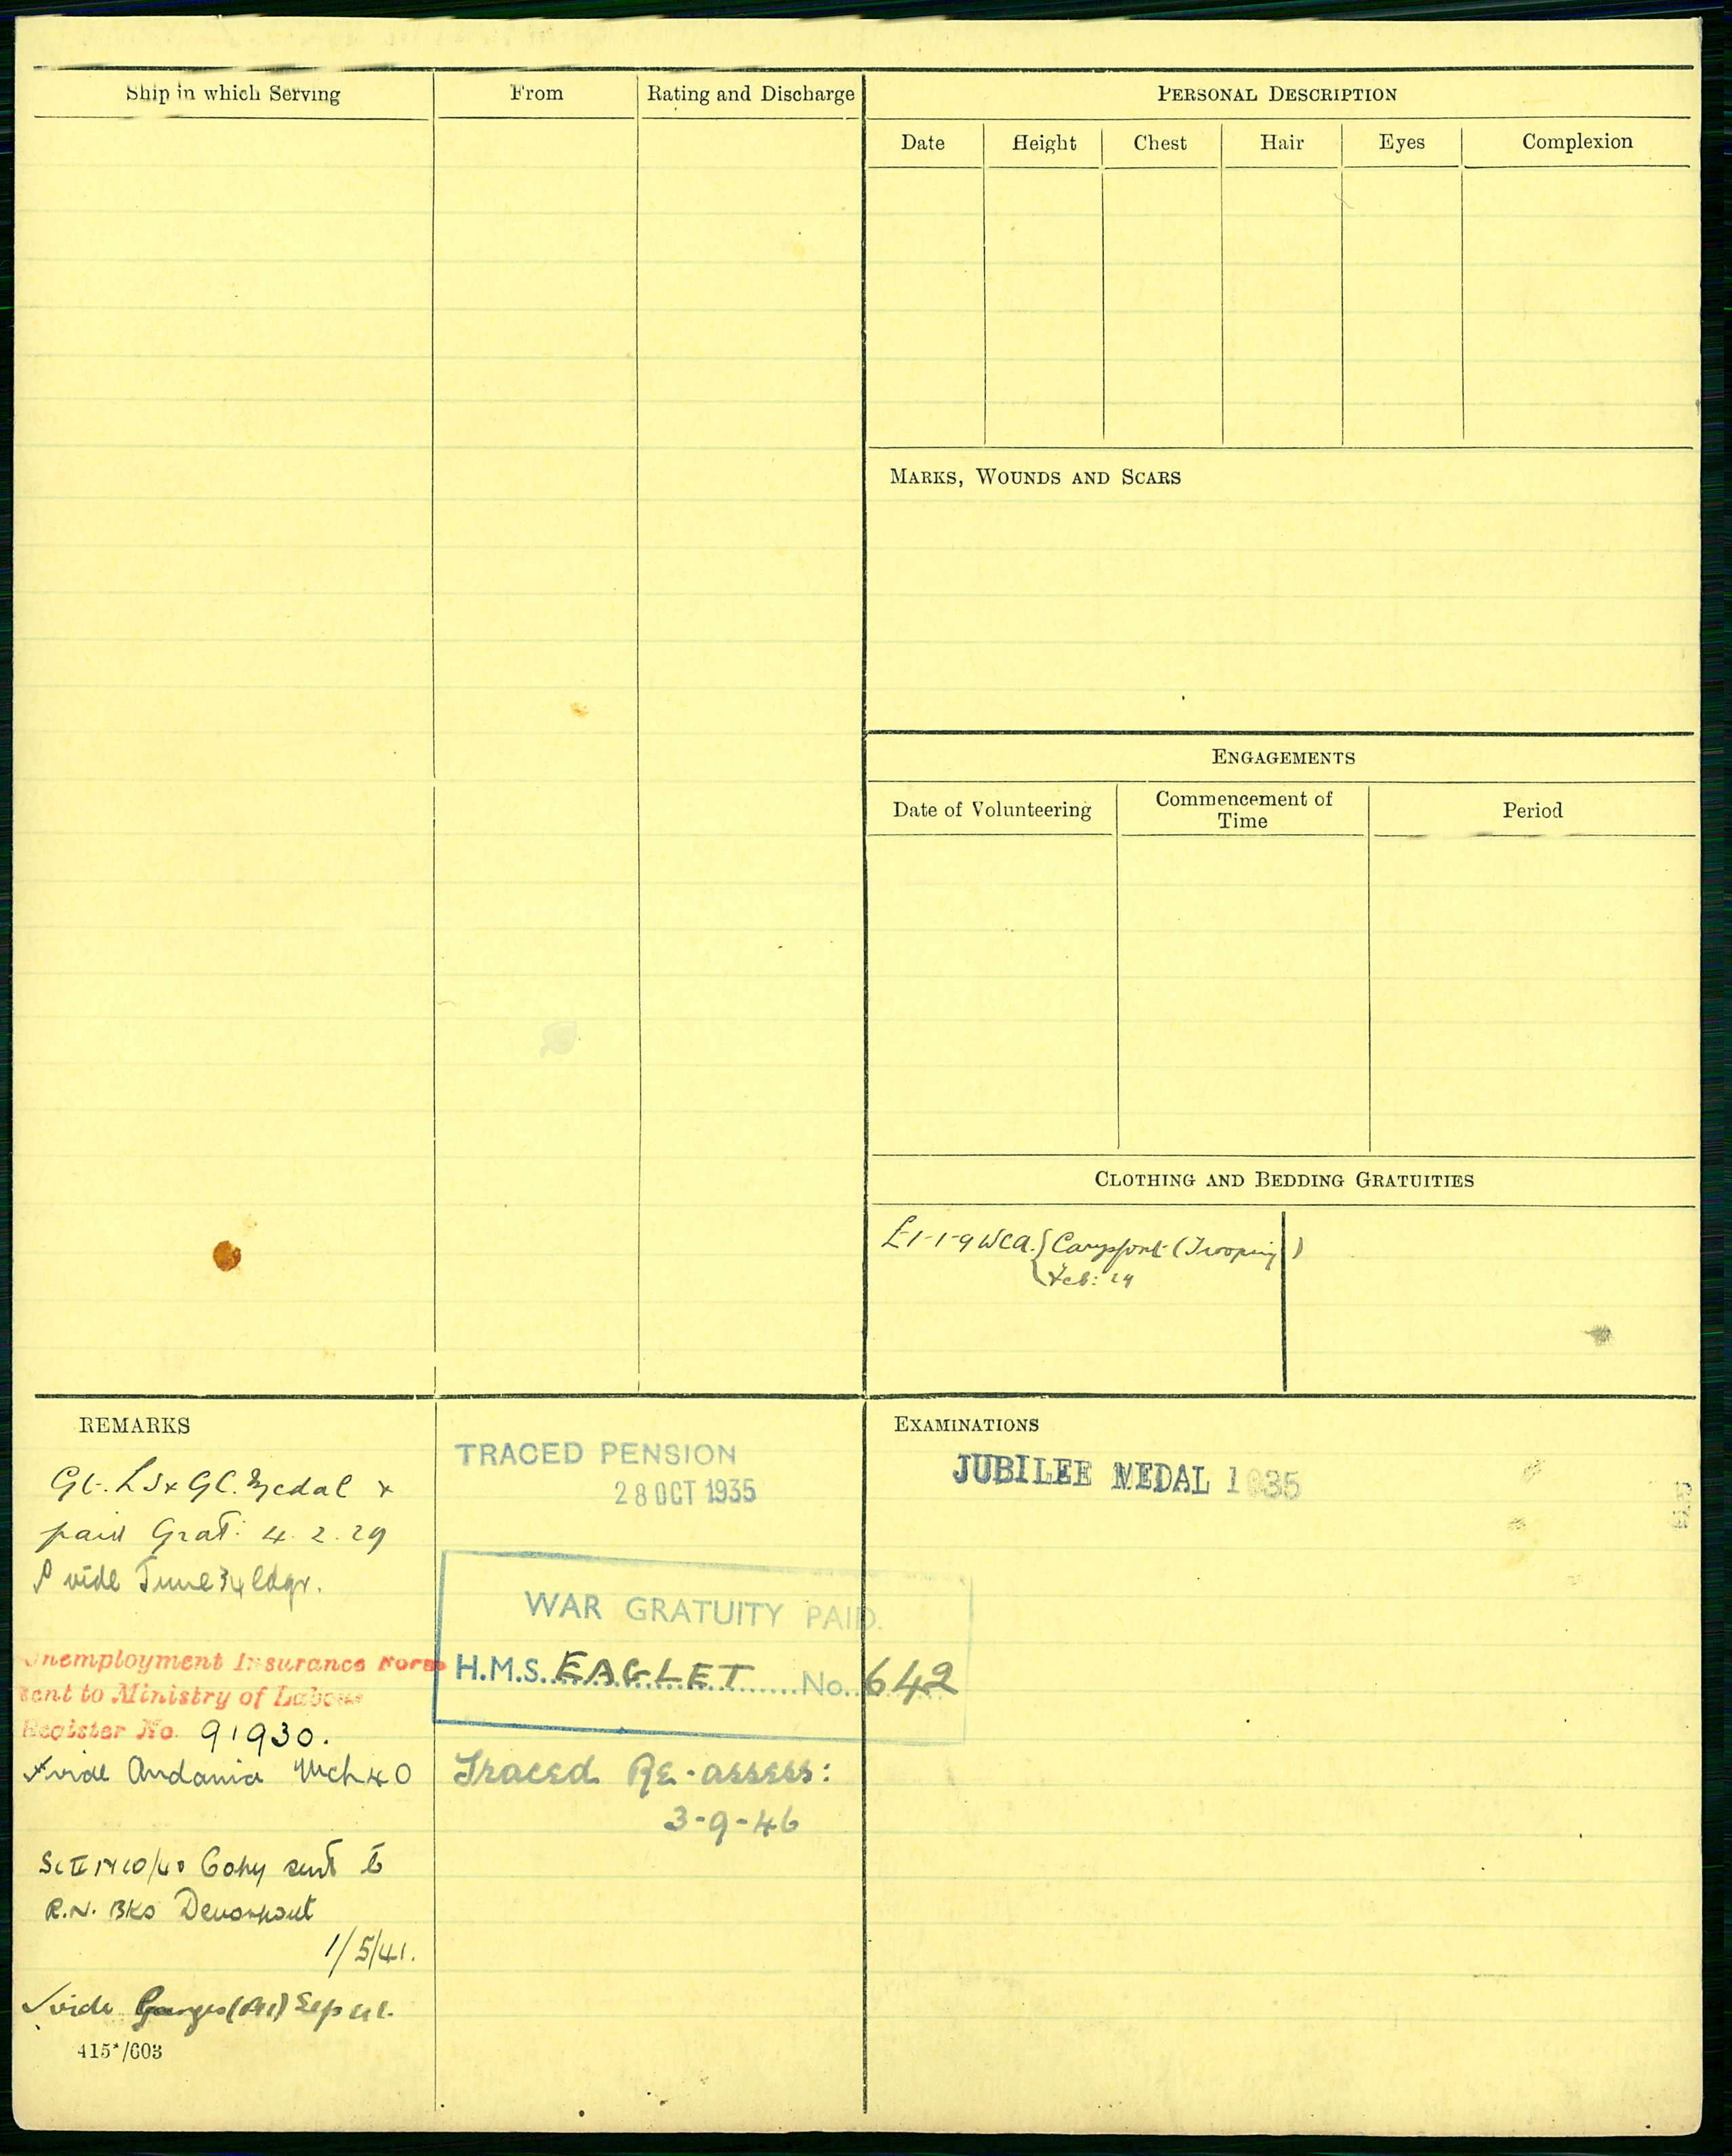 Ship in which Serving
From
Rating and Discharge
PERSONAL DESCRIPTION
Date
Height
Chest
Hair
Eyes
Complexion
MARKS, WOUNDS AND SCARS
ENGAGEMENTS
Date of Volunteering
Commencement of
Time
Period
CLOTHING AND BEDDING GRATUITIES
£1-1-9 WCA. { (Trooping)
Feb: 29
REMARKS
LS & GC. Medal &
paid Grat: 4. 2. 29
vide June 34 ldgr.
Unemployment Insurance Form
sent to Ministry of Labour
Register No. 91930.
vide Andania Mch 40
Copy sent to
R.N. Bks Devonport
1/5/41.
vide Ganges Sep 41.
415*/603
TRACED PENSION
28 OCT 1935
WAR GRATUITY PAID.
H.M.S. EAGLET No. 642
Traced Re-assess:
3-9-46
EXAMINATIONS
JUBILEE MEDAL 1935